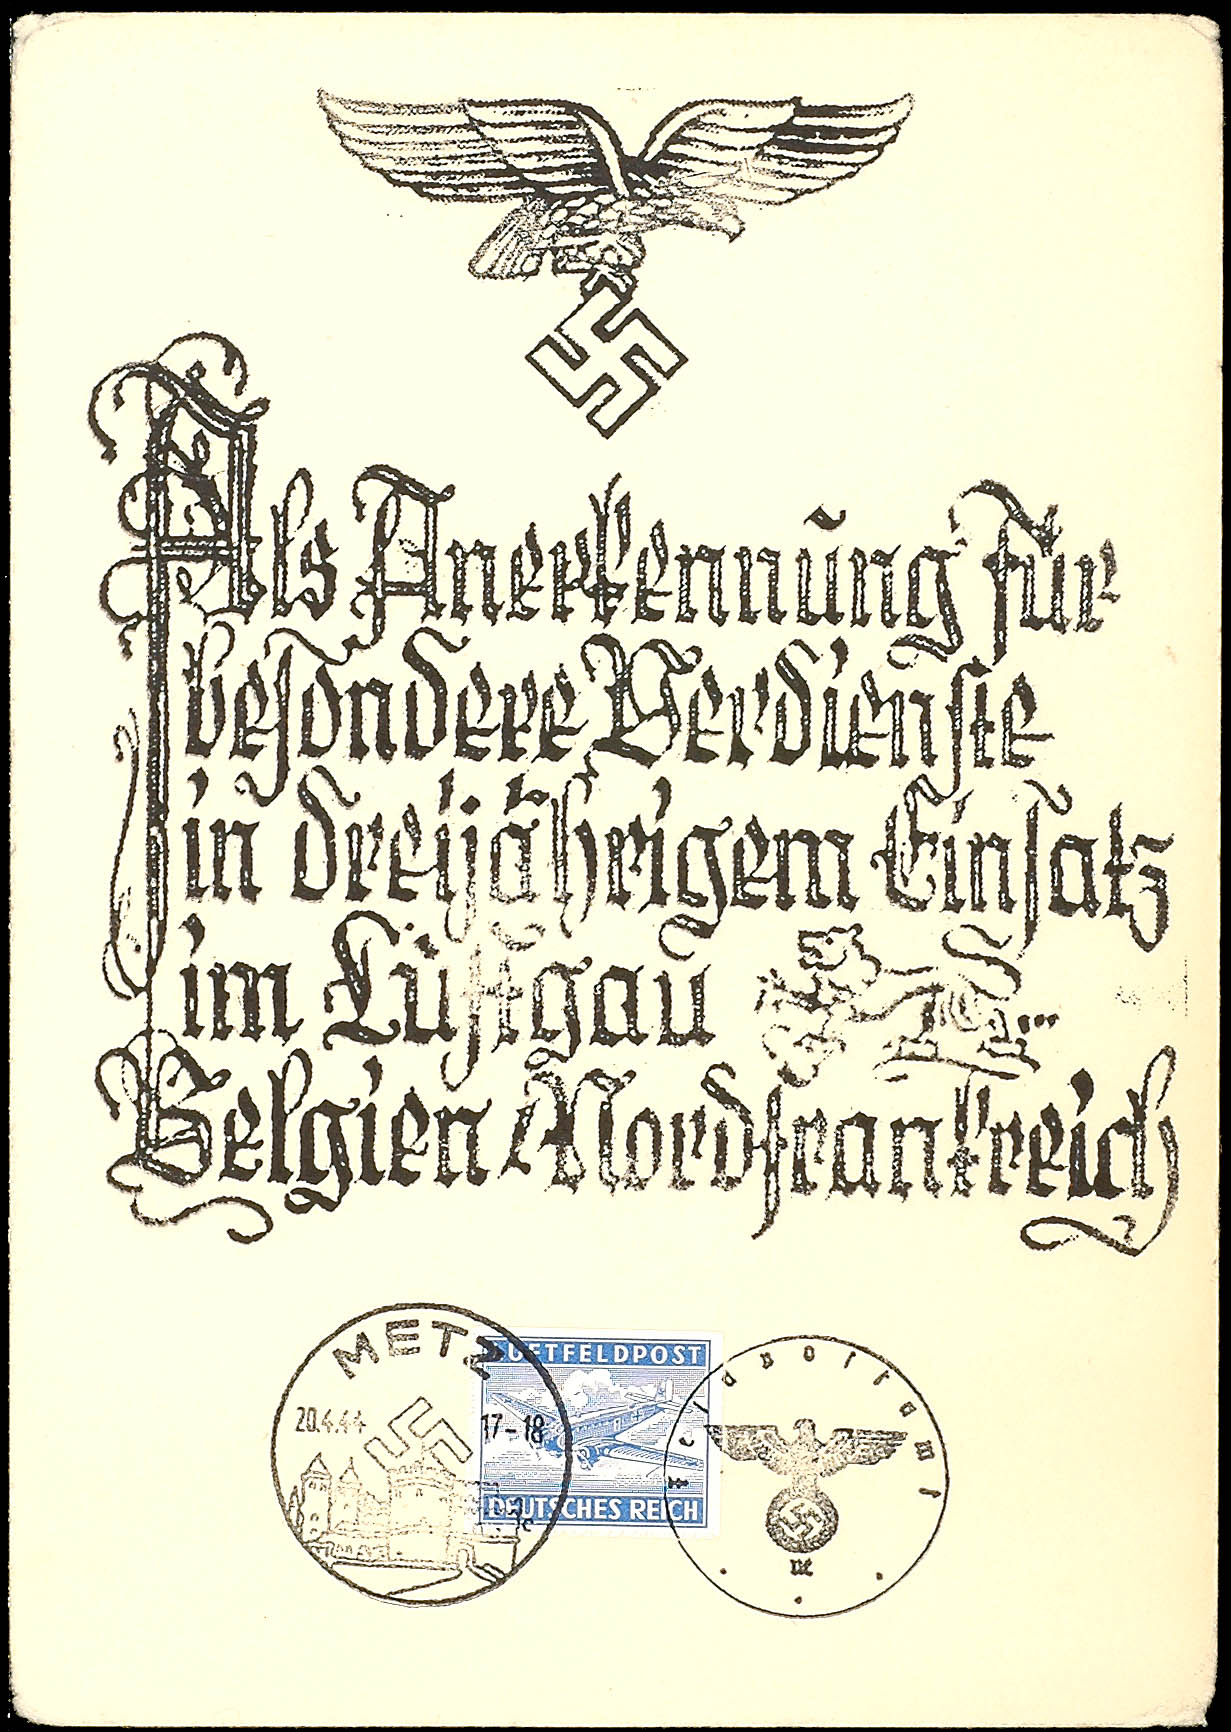 Als Anerkennung für
besondere Verdienste
in dreijährigem Einsatz
im Luftgau
Belgien/Nordfrankreich
METZ
20.4.44
17-18
LUFTFELDPOST
DEUTSCHES REICH